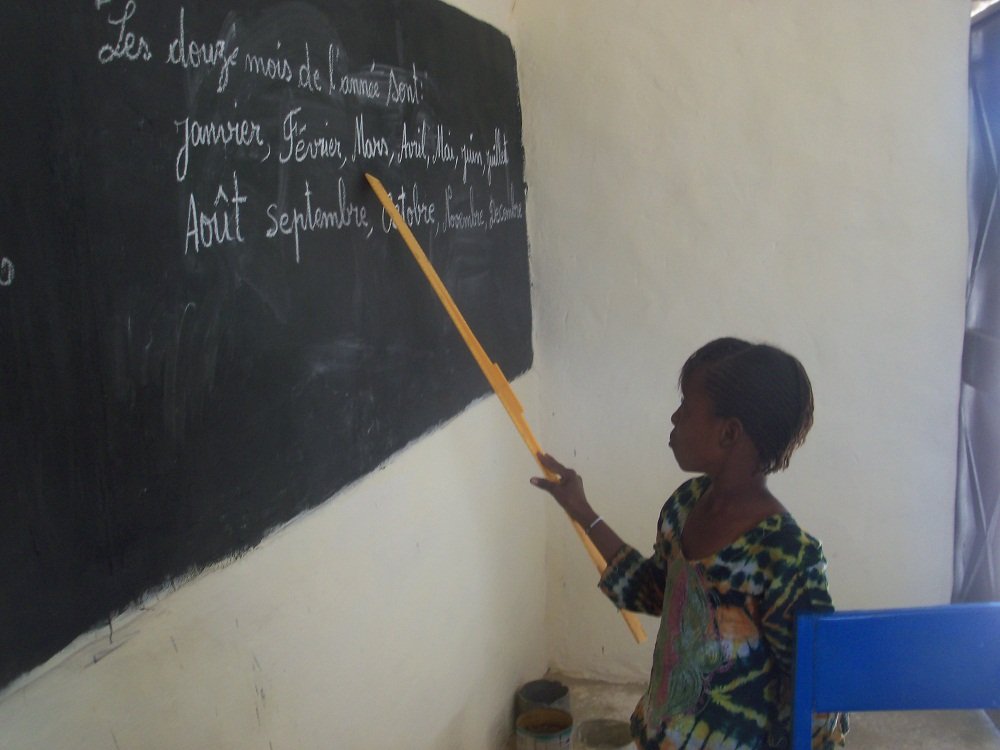 Les douze mois de l'année sont:
Janvier, Février, Mars, Avril, Mai, juin, juillet
Août Septembre, Octobre, Novembre, Decembre